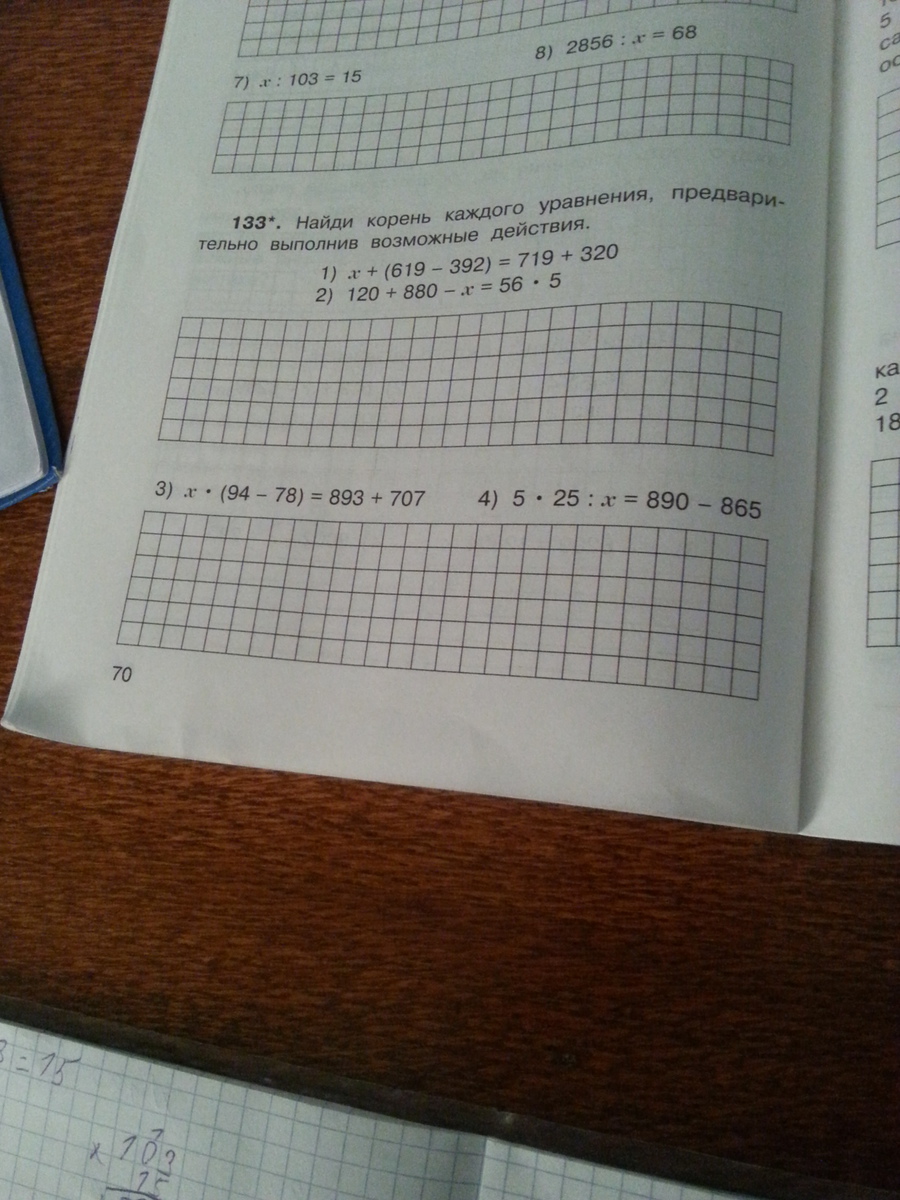 8) 2856 : x = 68
7) x : 103 = 15
133*. Найди корень каждого уравнения, предвари-
тельно выполнив возможные действия.
1) x + (619 − 392) = 719 + 320
2) 120 + 880 − x = 56 · 5
3) x · (94 − 78) = 893 + 707
4) 5 · 25 : x = 890 − 865
70
5
са
ка
2
18
3 = 15
x 103
15